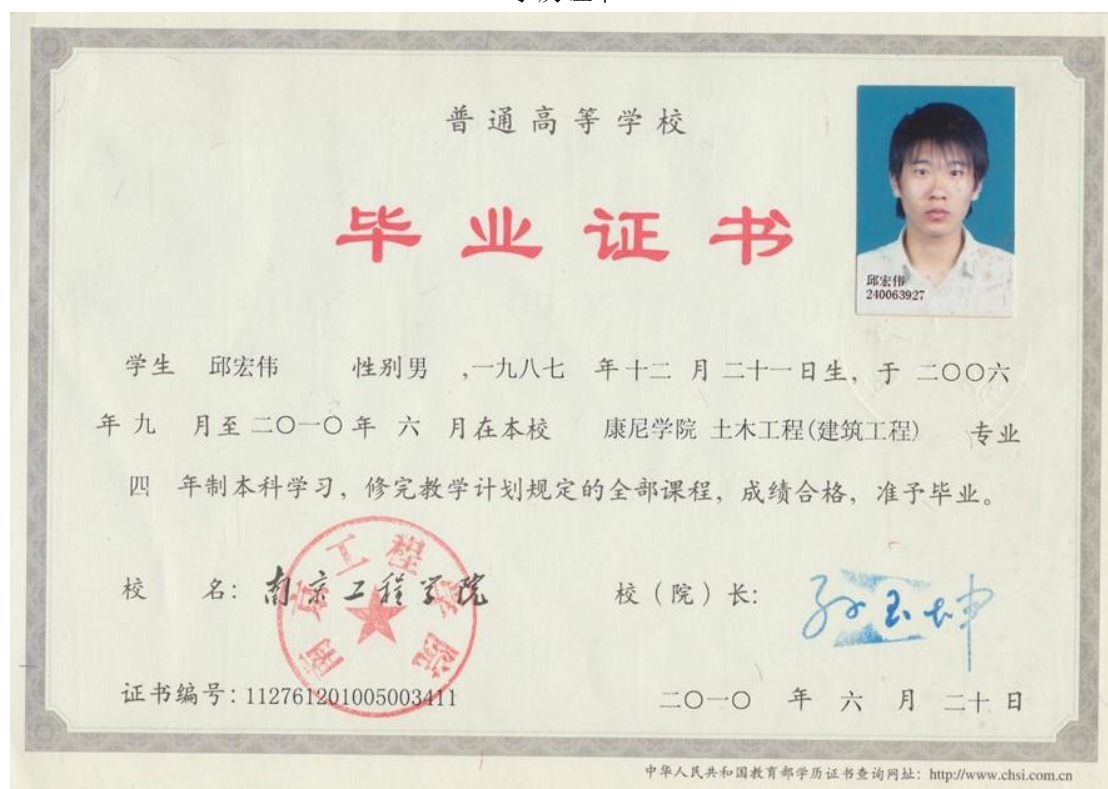 普通高等学校
毕业证书
邱宏伟
240063927
学生 邱宏伟 性别男 ,一九八七 年十二 月 二十一日生, 于 二〇〇六
年 九 月至 二〇一〇 年 六 月在本校 康尼学院 土木工程(建筑工程) 专业
四 年制本科学习, 修完教学计划规定的全部课程, 成绩合格, 准予毕业。
校 名: 南京工程学院
南京工程学院
校(院)长: 孙玉坤
证书编号: 112761201005003411
二〇一〇 年 六 月 二十 日
中华人民共和国教育部学历证书查询网址: http://www.chsi.com.cn